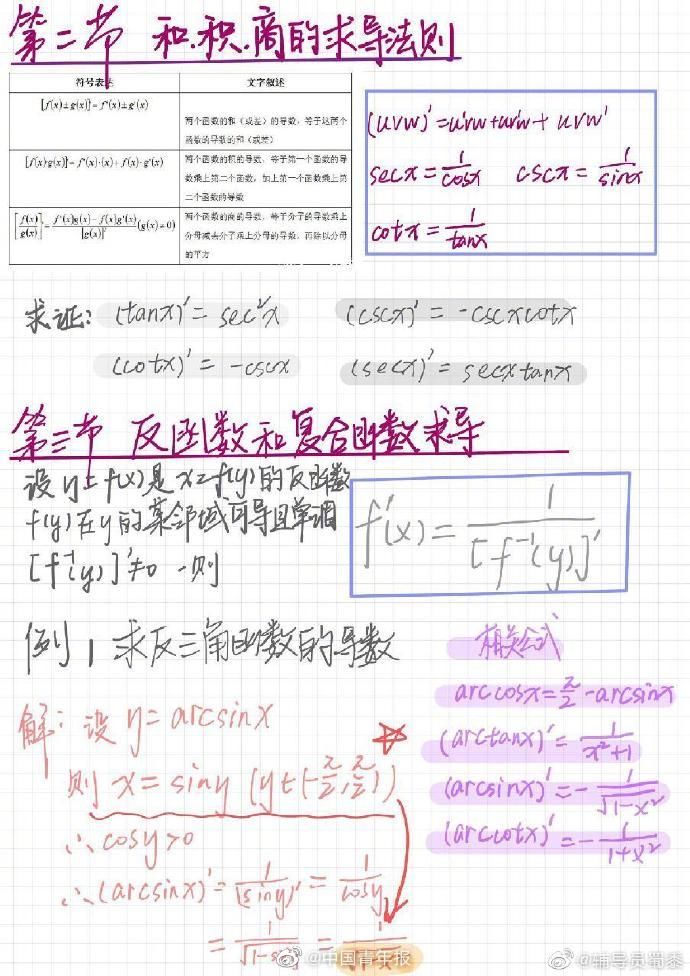 第二节 和.积.商的求导法则
符号表达 文字叙述
[f(x)±g(x)]'=f'(x)±g'(x) 两个函数的和（或差）的导数，等于这两个函数的导数的和（或差）
[f(x)g(x)]'=f'(x)·(x)+f(x)·g'(x) 两个函数的积的导数，等于第一个函数的导数乘上第二个函数，加上第一个函数乘上第二个函数的导数
[f(x)/g(x)]'=f'(x)g(x)-f(x)g'(x)/[g(x)]²(g(x)≠0) 两个函数的商的导数，等于分子的导数乘上分母减去分子乘上分母的导数，再除以分母的平方
(uvw)'=u'vw+uv'w+uvw'
secx=1/cosx cscx=1/sinx
cotx=1/tanx
求证: (tanx)'=sec²x (cscx)'=-cscxcotx
(cotx)'=-cscx (secx)'=secxtanx
第三节 反函数和复合函数求导
设y=f(x)是x=f(y)的反函数
f(y)在y的某邻域可导且单调
[f⁻¹(y)]'≠0 则
f'(x)=1/[f⁻¹(y)]'
例1 求反三角函数的导数
解:设y=arcsinx
则x=siny (y∈(-π/2,π/2))
∴cosy>0
∴(arcsinx)'=1/(siny)'=1/cosy
相关公式
arccosx=π/2-arcsinx
(arctanx)'=1/x²+1
(arcsinx)'=-1/√1-x²
(arccotx)'=-1/1+x²
@中国青年报
@辅导员蜀黍